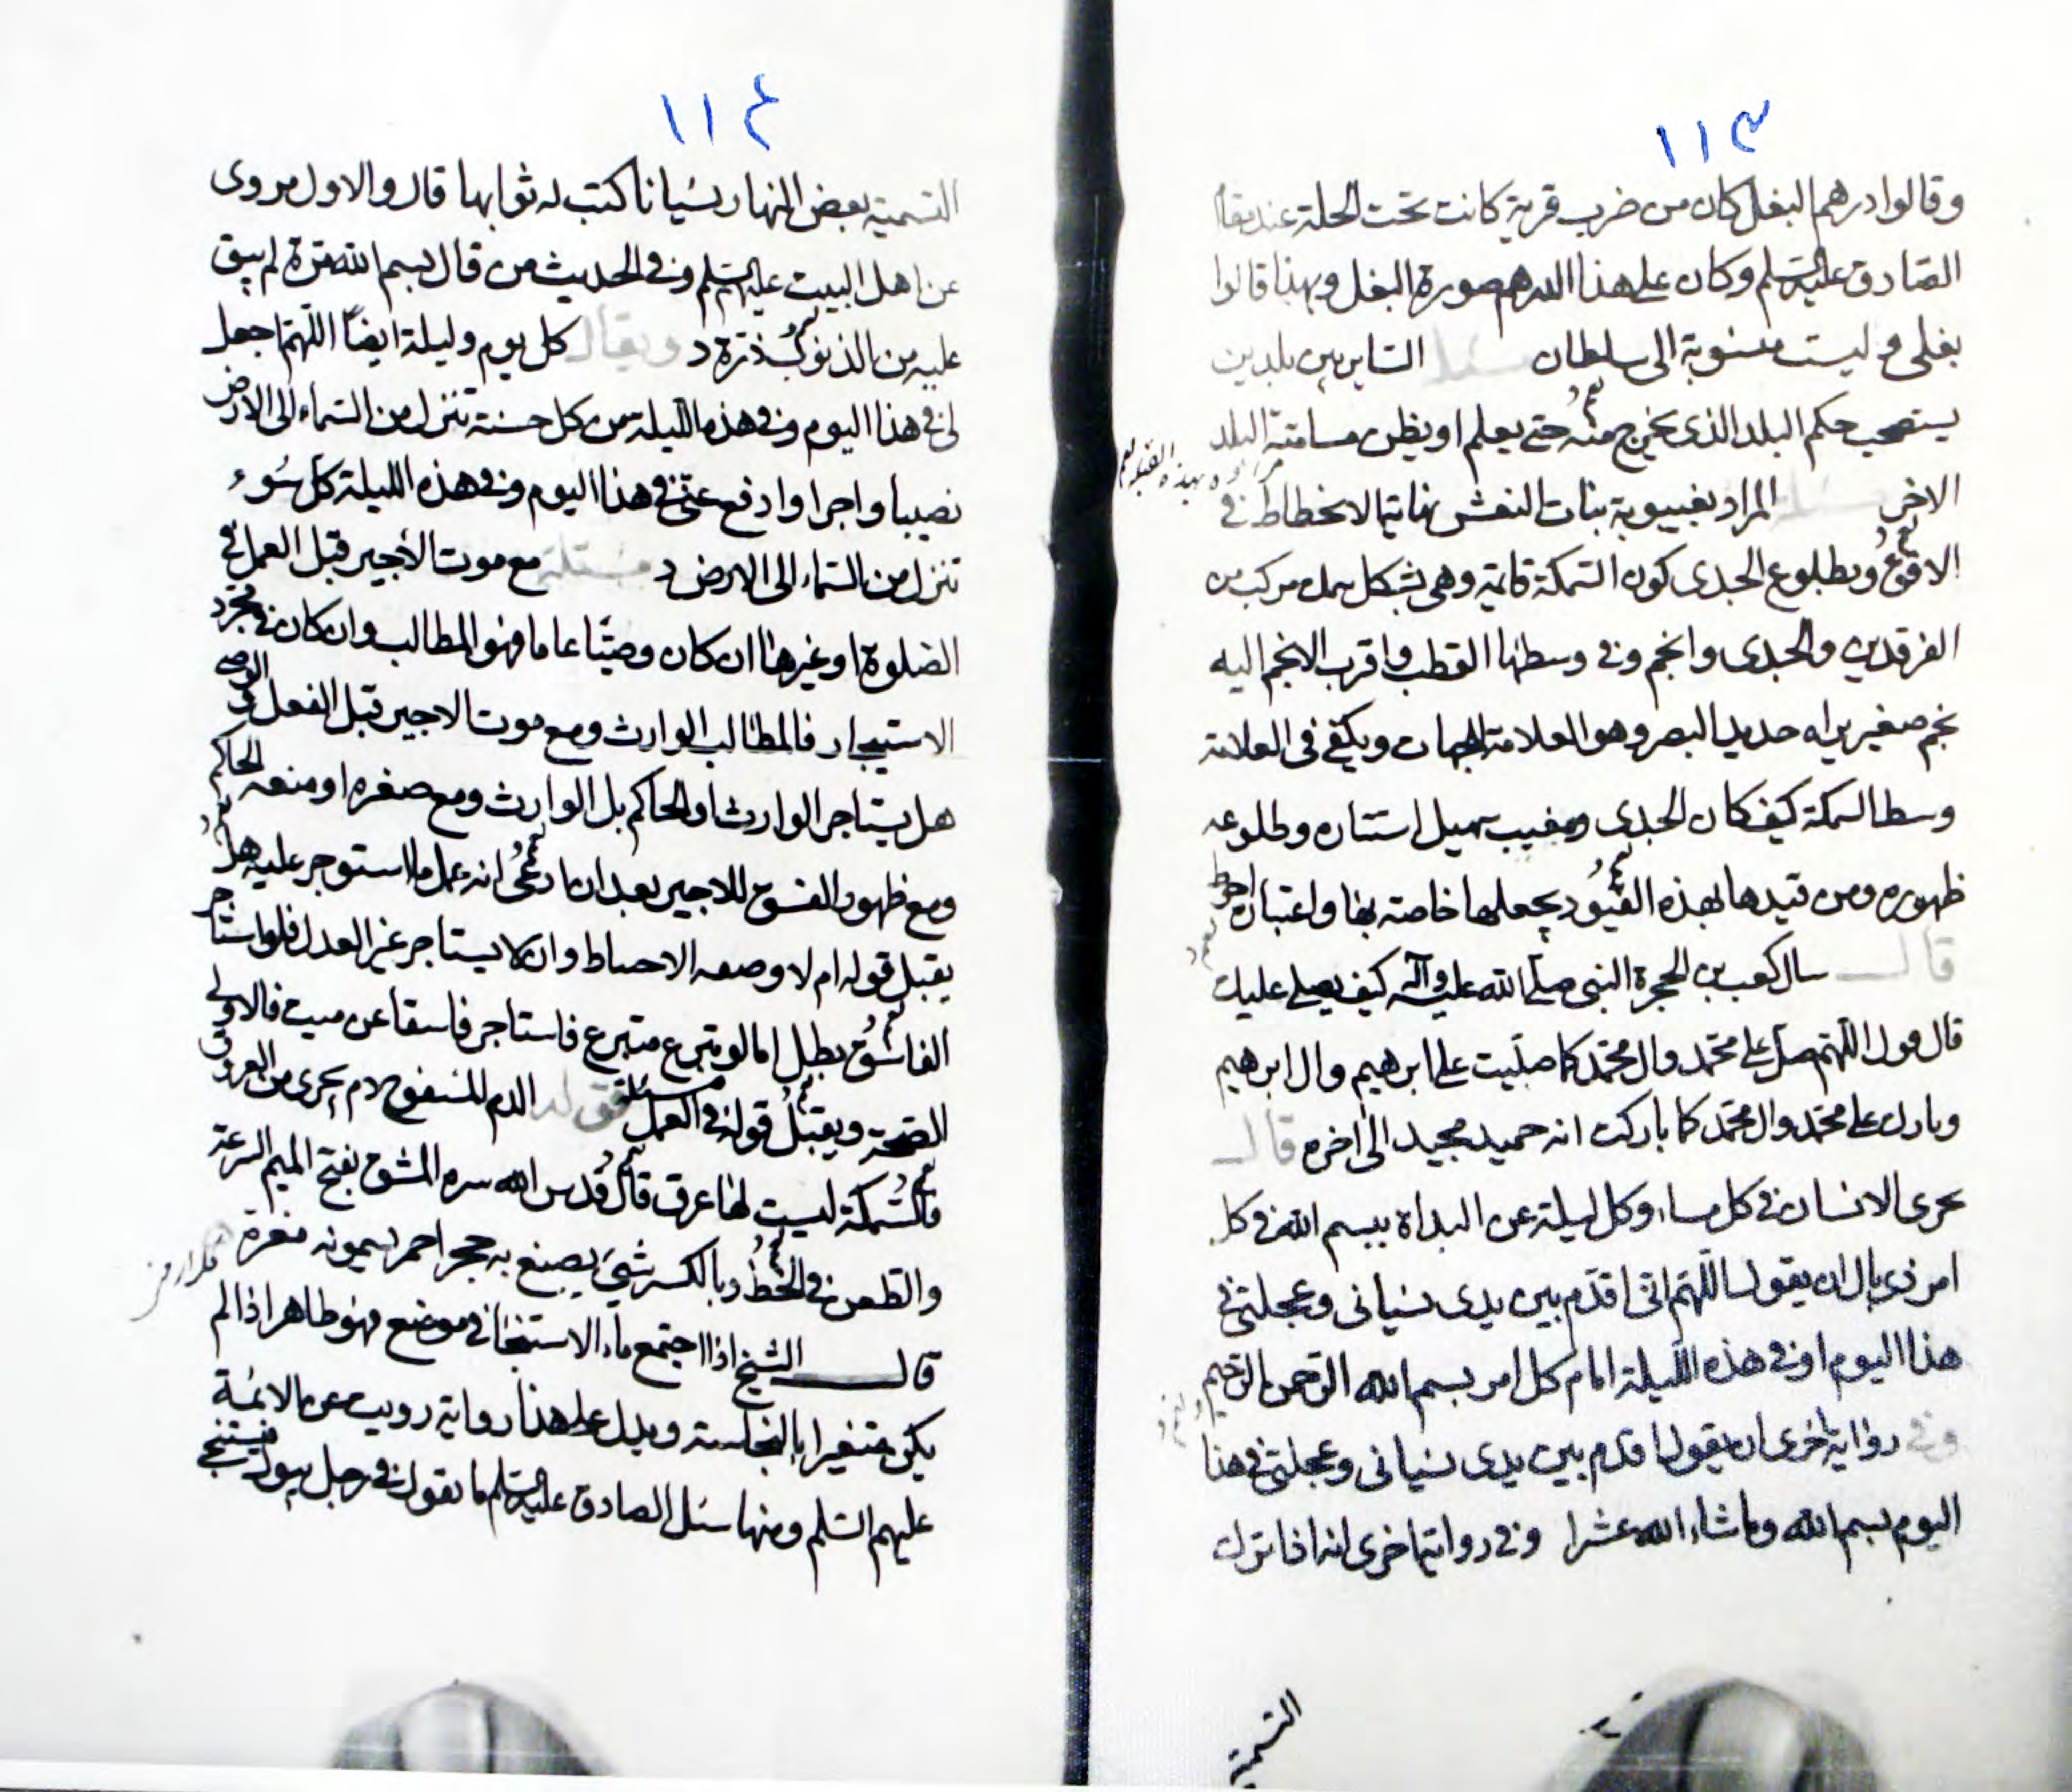 ١١٣
وقالوا درهم البغل كان من ضرب قرية كانت تحت الحلة عند بقا
الصادق عليه السلم وكان على هذا الدرهم صورة البغل وبهذا قالوا
بغلى وليست منسوبة الى سلطان مسئلة الساير بين بلدين
يستصحب حكم البلد الذى يخرج منه حتى يعلم او يظن مسامتة البلد
الاخر مسئلة المراد بغيبوبة بنات النعش نهاية الانخطاط فى
الافق وبطلوع الجدى كون السمكة قايمة وهى بشكل سمك مركب من
الفرقدين والجدى وانجم وفى وسطها القطب واقرب الانجم اليه
نجم صغير يراه حديد البصر وهو العلامة الجهات ويكفى فى العلامة
وسط السمكة كيف كان الجدى ومغيب سهيل استتاره وطلوعه
ظهوره ومن قيدها بهذه القيود يجعلها خاصة بها واعتباره احوط
قال سال كعب بن الحجرة النبى صلى الله عليه وآله كيف يصلى عليك
قال قول اللهم صل على محمد وال محمد كما صليت على ابرهيم وال ابرهيم
وبارك على محمد وال محمد كما باركت انه حميد مجيد الى اخره قال
يجزى الانسان فى كل مساء وكل ليلة عن البداة ببسم الله فى كل
امر ذى بال ان يقول اللهم انى اقدم بين يدى نسيانى وعجلتى فى
هذا اليوم او فى هذه الليلة امام كل امر بسم الله الرحمن الرحيم
وفى رواية اخرى ان يقول اقدم بين يدى نسيانى وعجلتى فى هذا
اليوم بسم الله وما شاء الله عشرا وفى رواية اخرى انه اذا ترك
التسمية
١١٤
التسمية بعض النهار نسيانا كتب له ثوابها قال والاول مروى
عن اهل البيت عليهم السلم وفى الحديث من قال بسم الله مرة لم يبق
عليه من الذنوب ذرة ويقال كل يوم وليلة ايضا اللهم اجعل
لى فى هذا اليوم وفى هذه الليلة من كل حسنة تنزل من السماء الى الارض
نصيبا واجرا وادفع عنى فى هذا اليوم وفى هذه الليلة كل سوء
تنزل من السماء الى الارض مسئلة مع موت الأجير قبل العمل فى
الصلوة او غيرها ان كان وصيا عاما فهو المطالب وان كان فى مجرد
الاستيجار فالمطالب الوارث ومع موت الاجير قبل الفعل الوصى
هل يستاجر الوارث او الحاكم بل الوارث ومع صغره او منعه الحاكم
ومع ظهور الفسوق للاجير بعد ان ادعى انه عمل ما استوجر عليه هل
يقبل قوله ام لا وصعه الاحساط وان لا يستاجر غير العدل فلو استاجر
الفاسق بطل اما لو تبرع متبرع فاستاجر فاسقا عن ميت فالاولى
الصحة ويقبل قوله فى العمل مسئلة قوله الدم المسفوح دم يجرى من العروق
فالسمكة ليست لها عرق قال قدس الله سره المشق بفتح الميم السرعة
والطعن فى الخط وبالكسر شئ يصبغ به حجر احمر يسمونه مغرة
قال الشيخ اذا اجتمع ماء الاستنجا فى موضع فهو طاهر اذا لم
يكن متغيرا بالنجاسة ويدل على هذا رواية رويت عن الائمة
عليهم السلم ومنها سئل الصادق عليه السلم ما تقول فى رجل يبول فيستنجى